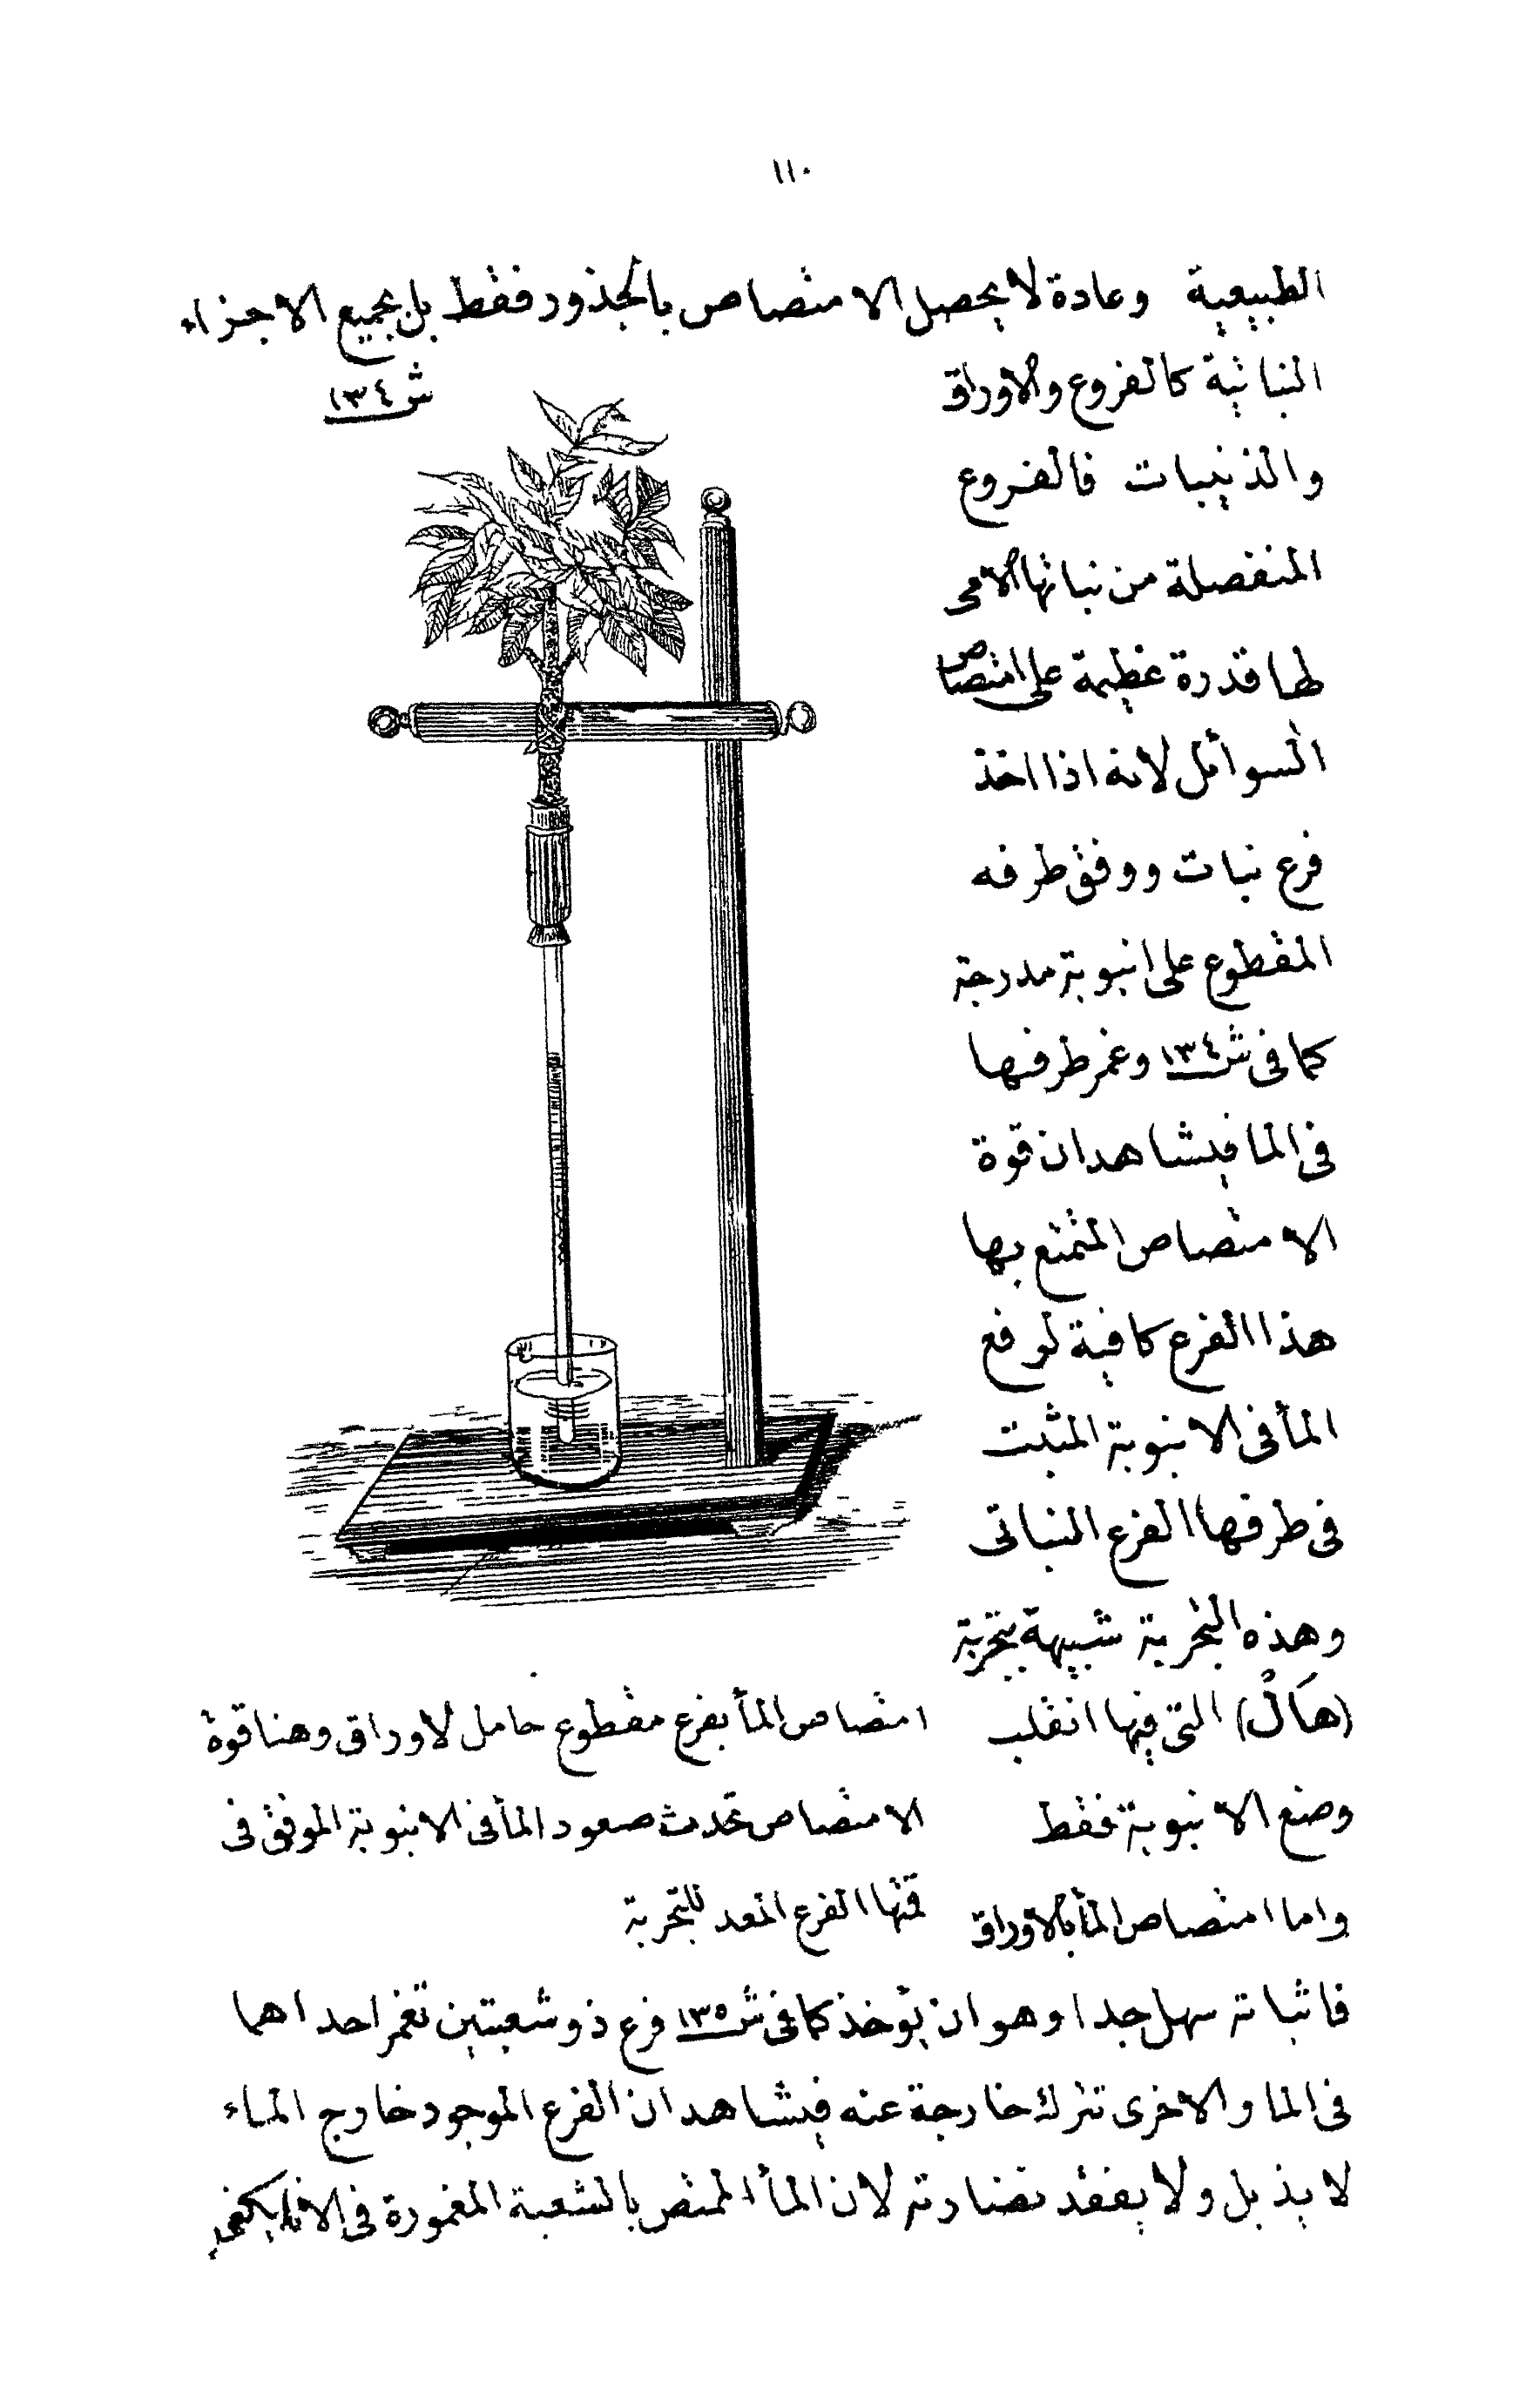 ١١٠
الطبيعية وعادة لا يحصل الامتصاص بالجذور فقط بل بجميع الاجزاء
ش ١٣٤
النباتية كالفروع والاوراق
والذنيبات فالفروع
المنفصلة من نباتها الامى
لها قدرة عظيمة على امتصاص
السوائل لانه اذا اخذ
فرع نبات ووفق طرفه
المقطوع على انبوبة مدرجة
كما فى ش ١٣٤ وغمر طرفها
فى الما فيشاهد ان قوة
الامتصاص المتمتع بها
هذا الفرع كافية لرفع
المأ فى الانبوبة المثبت
فى طرفها الفرع النباتى
وهذه التجربة شبيهة بتجربة
(هَالْ) التى فيها انقلب
وضع الانبوبة فقط
واما امتصاص المأ بالاوراق
امتصاص المأ بفرع مقطوع حامل لاوراق وهنا قوة
الامتصاص تحدث صعود المأ فى الانبوبة الموفق فى
قمتها الفرع المعد للتجربة
فاثباته سهل جدا وهو ان يؤخذ كما فى ش ١٣٥ فرع ذو شعبتين تغمر احداهما
فى الما والاخرى تترك خارجة عنه فيشاهد ان الفرع الموجود خارج الماء
لا يذبل ولا يفقد نضارته لان المأ الممتص بالشعبة المغمورة فى الاناء يكفى